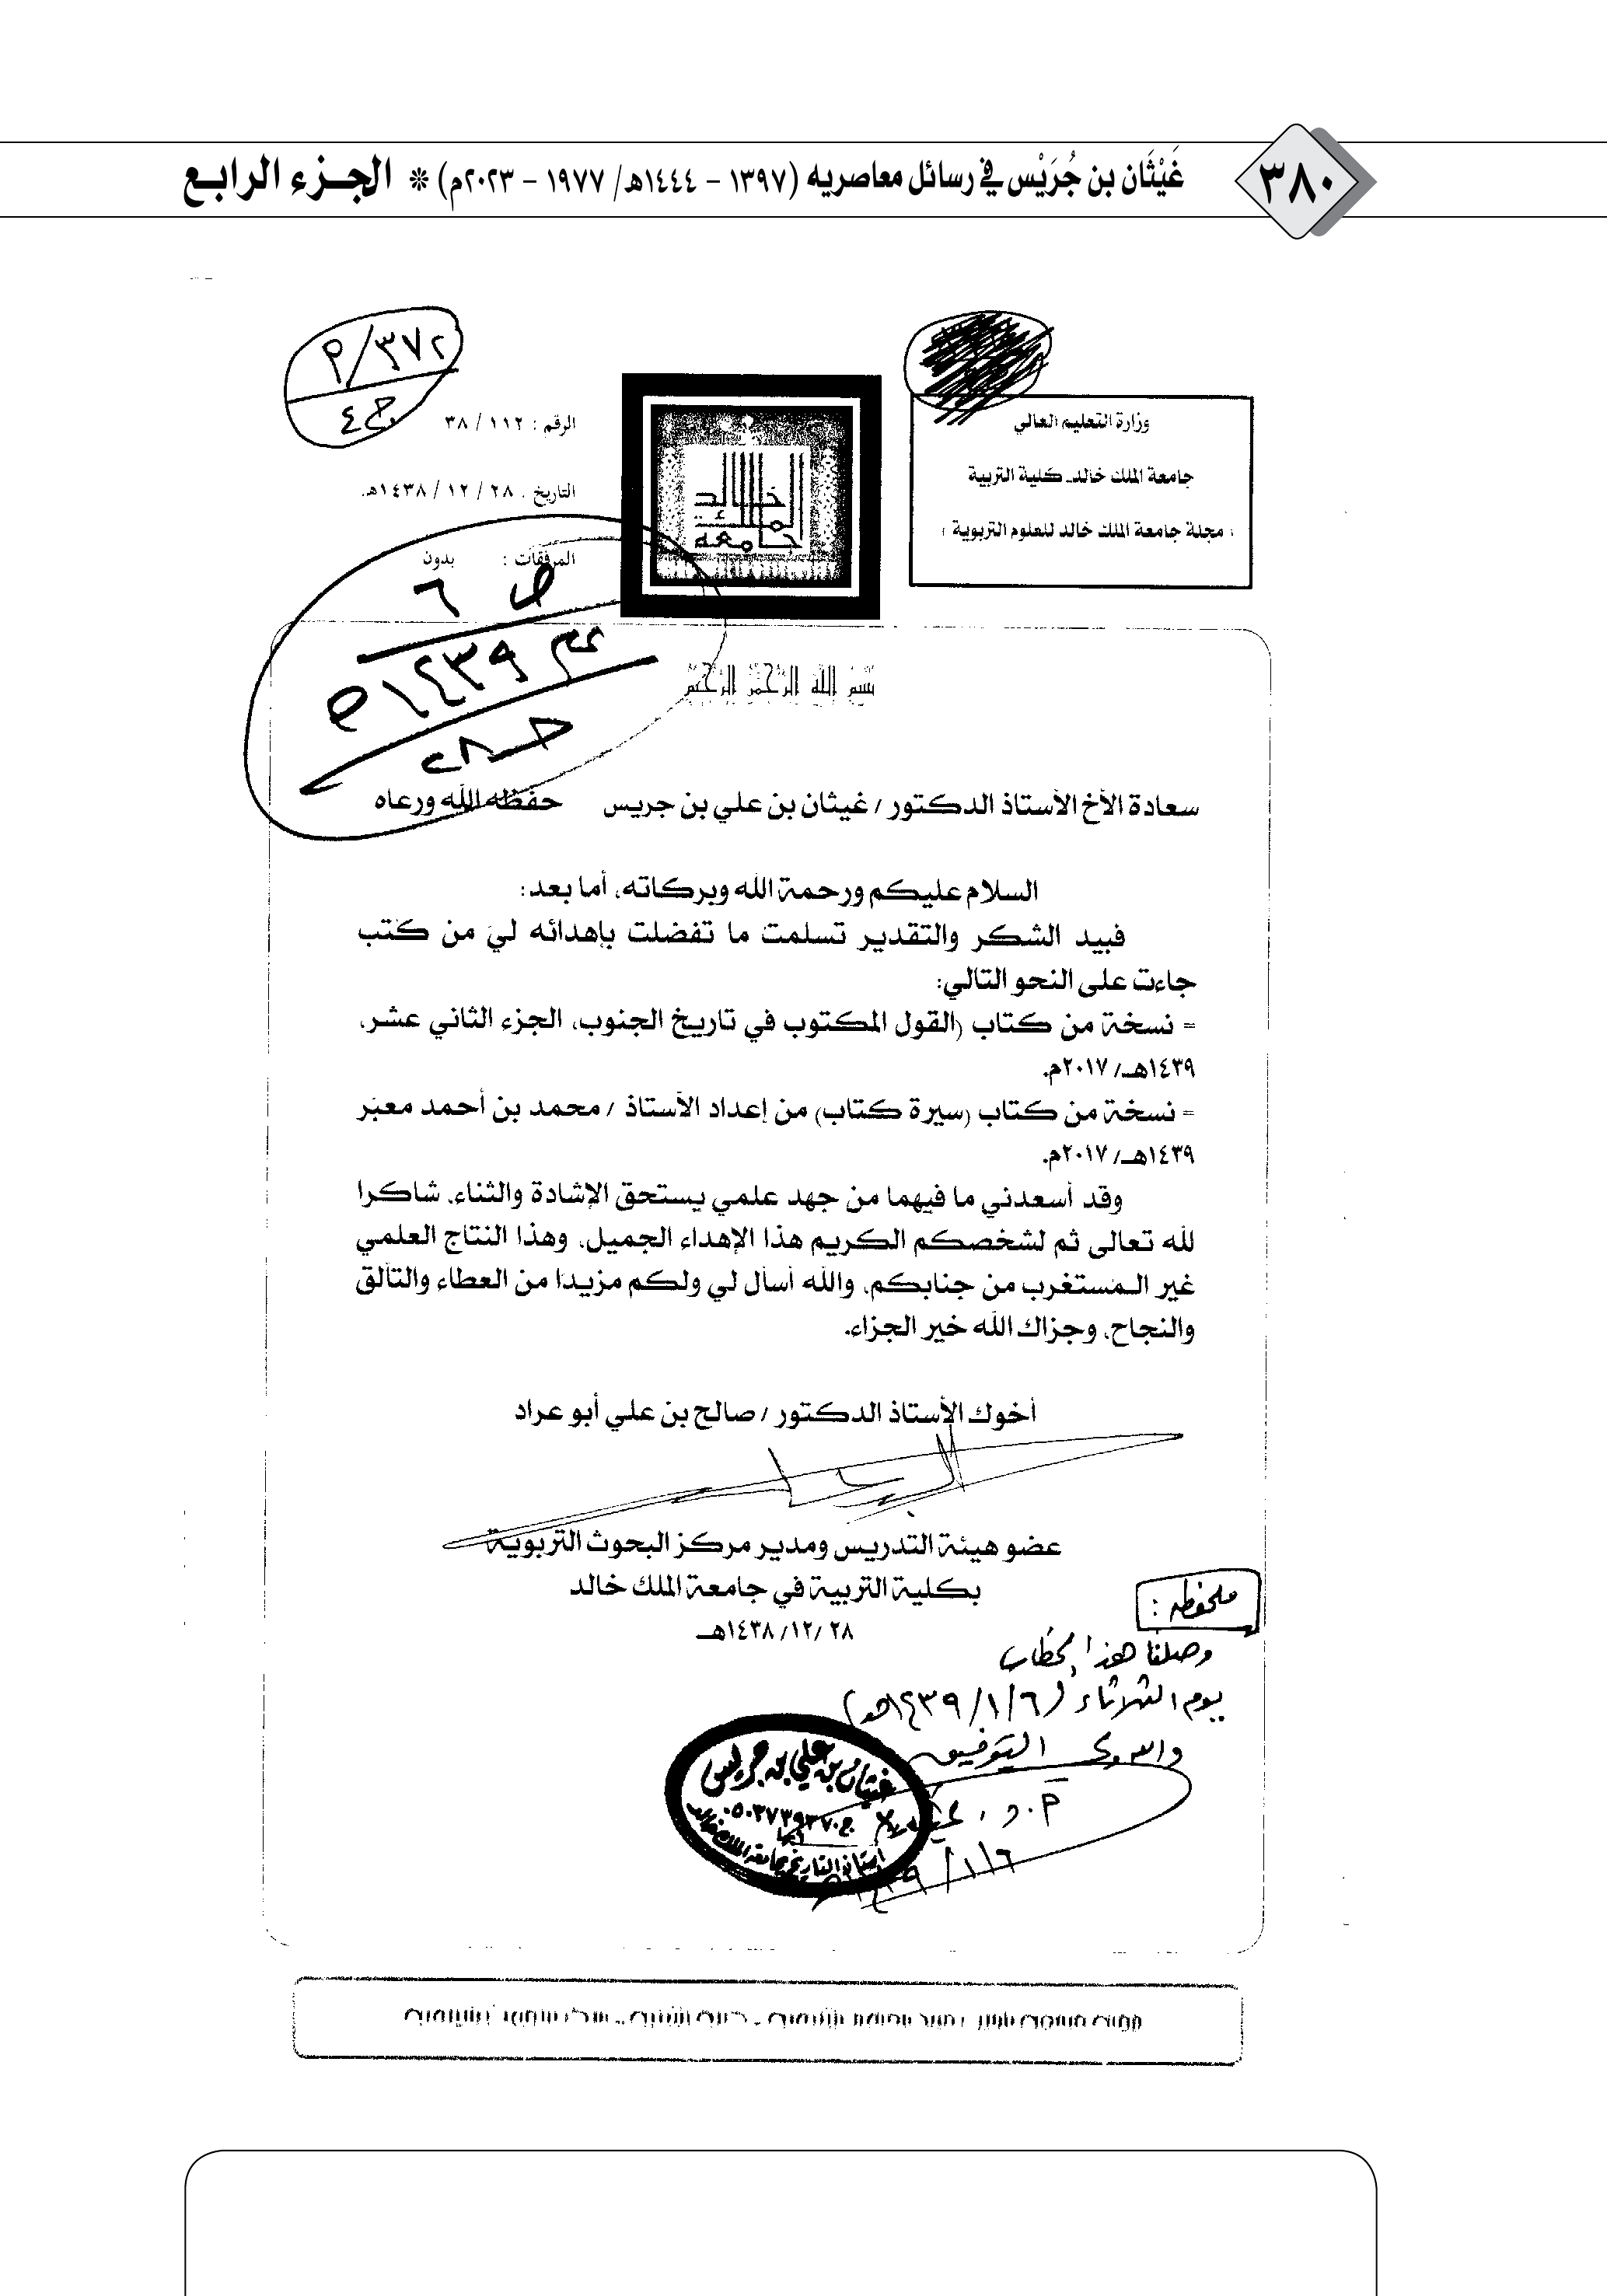 ٣٨٠
غَيْثَان بن جُرَيْس في رسائل معاصريه (١٣٩٧ – ١٤٤٤هـ/ ١٩٧٧ – ٢٠٢٣م) ❊ الجـزء الرابـع
وزارة التعليم العالي
جامعة الملك خالد ـ كلية التربية
( مجلة جامعة الملك خالد للعلوم التربوية )
٣٧٢/م
ج٤
الرقم : ١١٢ / ٣٨
التاريخ : ٢٨ / ١٢ / ١٤٣٨هـ
المرفقات : بدون
ص ٦
١٤٣٩هـ
بسم الله الرحمن الرحيم
سعادة الأخ الأستاذ الدكتور / غيثان بن علي بن جريس حفظه الله ورعاه
السلام عليكم ورحمة الله وبركاته، أما بعد:
فبيد الشكر والتقدير تسلمت ما تفضلت بإهدائه لي من كتب
جاءت على النحو التالي:
= نسخة من كتاب (القول المكتوب في تاريخ الجنوب، الجزء الثاني عشر،
١٤٣٩هـ/ ٢٠١٧م.
= نسخة من كتاب (سيرة كتاب) من إعداد الأستاذ / محمد بن أحمد معبر
١٤٣٩هـ/ ٢٠١٧م.
وقد أسعدني ما فيهما من جهد علمي يستحق الإشادة والثناء، شاكرا
لله تعالى ثم لشخصكم الكريم هذا الإهداء الجميل، وهذا النتاج العلمي
غير المستغرب من جنابكم، والله أسأل لي ولكم مزيدا من العطاء والتألق
والنجاح، وجزاك الله خير الجزاء.
أخوك الأستاذ الدكتور / صالح بن علي أبو عراد
عضو هيئة التدريس ومدير مركز البحوث التربوية
بكلية التربية في جامعة الملك خالد
٢٨ /١٢/ ١٤٣٨هـ
ملحوظة :
وصلنا هذا الخطاب
يوم الثلاثاء (١٤٣٩/١/٦هـ)
والله ولي التوفيق
غيثان بن علي بن جريس
ج٠٥٠٣٧٣٩٣٧٠
أبها
أستاذ التاريخ بجامعة الملك خالد
١٤٣٩/١/٦